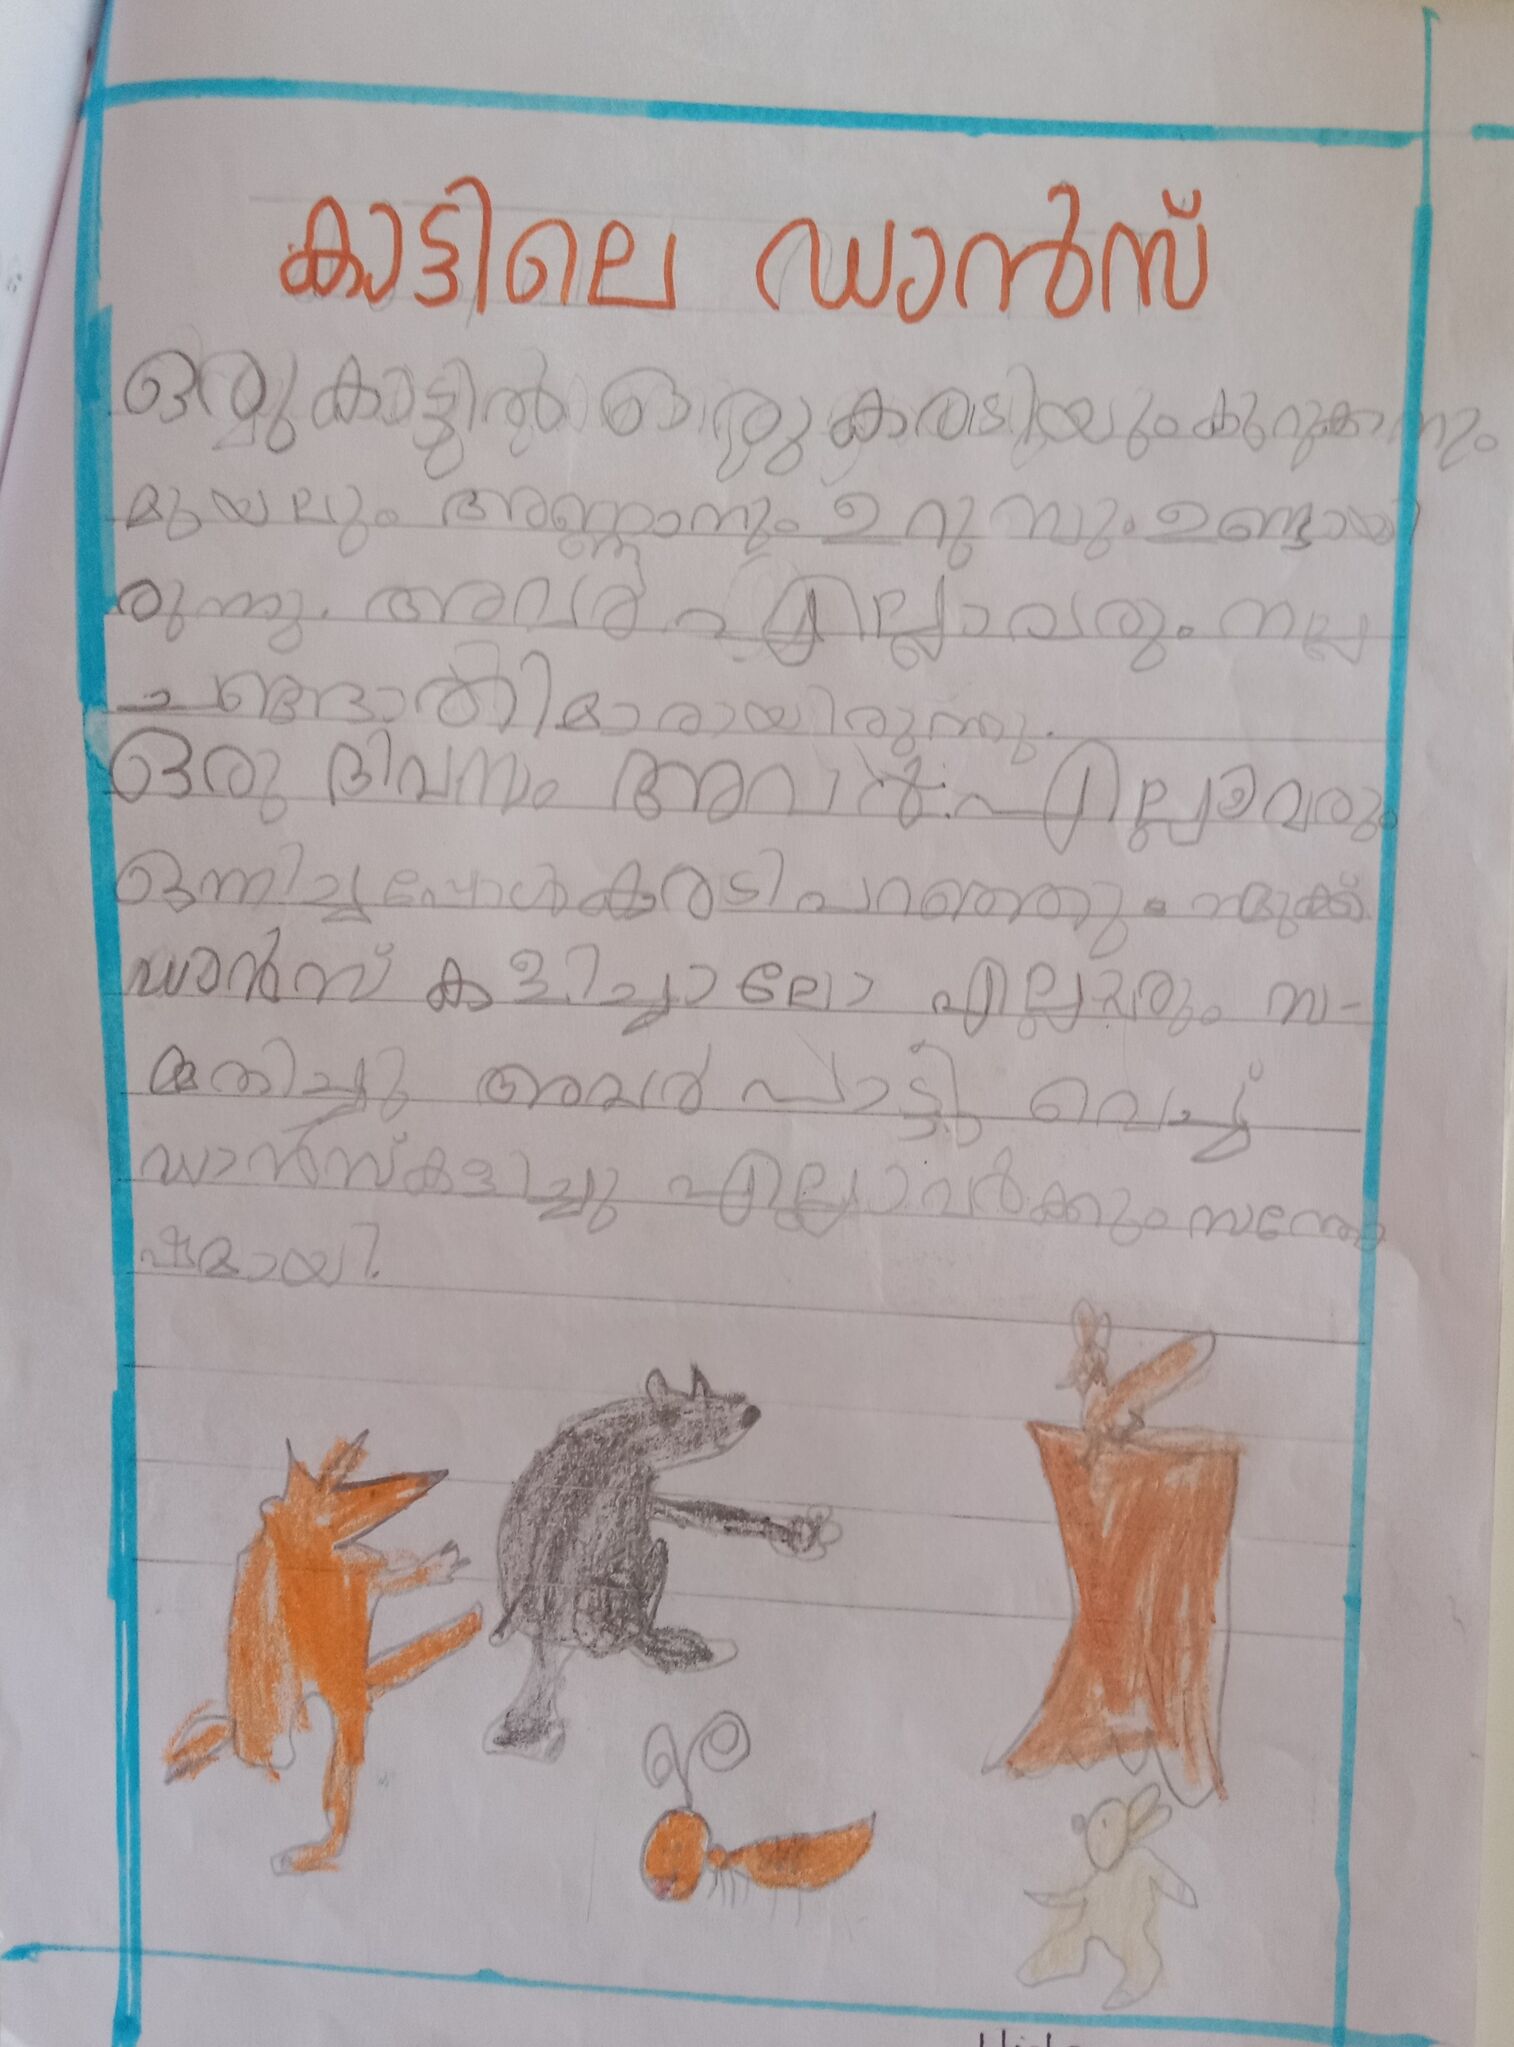 കാട്ടിലെ ഡാൻസ്
ഒരു കാട്ടിൽ ഒരു കരടിയും കുറുക്കനും
മുയലും അണ്ണാനും ഉറുമ്പും ഉണ്ടായി
രുന്നു. അവർ എല്ലാവരും നല്ല
ചങ്ങാതിമാരായിരുന്നു.
ഒരു ദിവസം അവർ എല്ലാവരും
ഒന്നിച്ചപ്പോൾ കരടി പറഞ്ഞു നമുക്ക്
ഡാൻസ് കളിച്ചാലോ എല്ലാവരും സ-
മ്മതിച്ചു അവർ പാട്ട് വെച്ച്
ഡാൻസ് കളിച്ചു എല്ലാവർക്കും സന്തോ
ഷമായി.